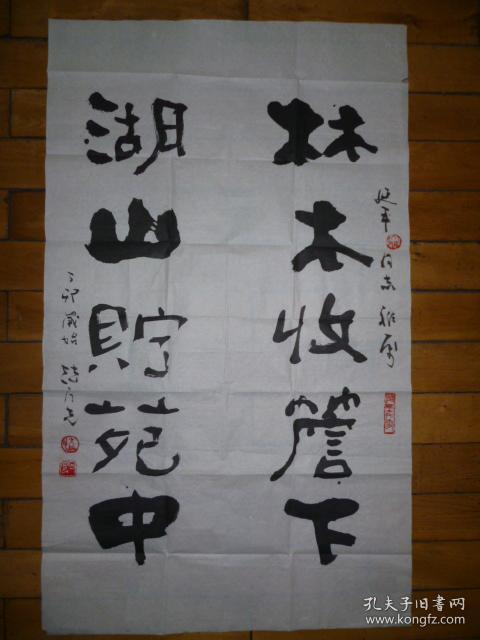 林木收簷下
湖山貯苑中
延年同志雅属
丁卯歲始
孔夫子旧书网
www.kongfz.com